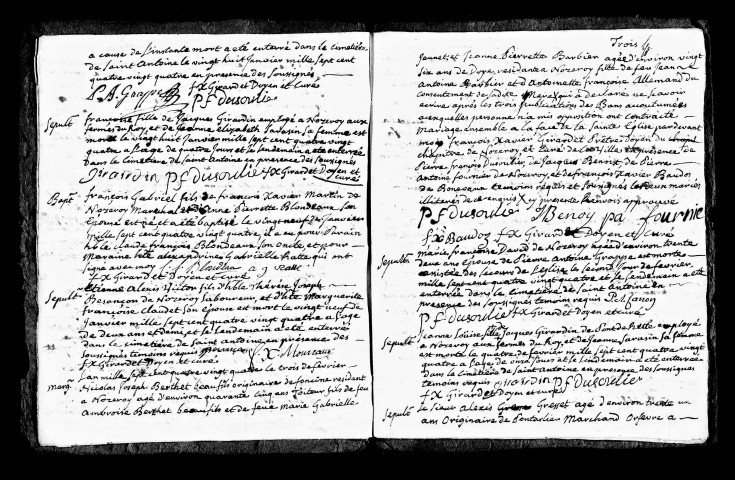 a cause de l'instante mort a été enterré dans le cimetiére
de Saint Antoine le vingt huit Janvier mille sept cent
quatre vingt quatre en presence des Soussignés
fx Girard et Doyen et Curé
P f dusoulier
Sepult françoise fille de Jacques Girardin employé a Nozeroy aux
fermes du Roy, et de Jeanne Elizabeth Sarasin sa femme est
morte le vingt huit Janvier mille sept cent quatre vingt
quatre a l'age de quatre Jours et le lendemain a été enterrée
dans le cimetiere de Saint Antoine en presence des soussignés
Girardin P f dusoulier fx Girard et Doyen et
Curé
Bapt françois Gabriel fils de françois Xavier Martin de
Nozeroy Marechal et d'Anne Pierrette Blondeaux son
Epouse est né et a été baptisé le vingt neuf de Janvier
mille sept cent quatre vingt quatre, il a eu pour Parain
claude françois Blondeaux son oncle et pour
Maraine alexandrine Gabrielle qui ont
signé avec moy
fx Girard et Doyen et Curé
Sepult Etienne Alexis fils d'hble Thérese Joseph
Besançon de Nozeroy Laboureur, et d'hte Marguerite
françoise Claudet son epouse est mort le vingt neuf de
Janvier mille sept cent quatre vingt quatre a l'age
de deux ans et demi et le lendemain a été enterré
dans le cimetiere de saint antoine en presence des
soussignés temoins requis
fx Girard et Doyen et curé
L'an mille sept cent quatre vingt quatre le trois de fevrier
Mariag Nicolas Joseph Berthet originaire de foncine residant
a Nozeroy agé d'environ quarante cinq ans fils de feu
Ambroise Berthet et de feüe Marie Gabrielle
Trois
Jeunet; et Jeanne Pierrette Barbier agée d'environ vingt
six ans de Doye, residante a Nozeroy fille de feu Jean
Antoine Barbier et d'Antoinette françoise Allemand du
consentement de sadite Mere qui a declaré ne scavoir
ecrire après les trois publications des Bans accoutumées
auxquelles personne n'a mis opposition ont contracté
Mariage ensemble a la face de la Sainte Eglise pardevant
moy françois Xavier Girard et Prêtre Doyen du
chapitre de Nozeroy et Curé de ladite ville, en presence de
Pierre de Jacques Benoist de Pierre
Antoine fournier de Nozeroy, et de françois Xavier Baudoz
de temoins requis et soussignés les deux mariés
illiterés de ce enquis
P f dusoulier J Benoy p a fournie
f x Baudoz fx Girard et Doyen et Curé
Sepulture Marie françoise David de Nozeroy agée d'environ trente
deux ans epouse de Pierre Antoine Grappe est morte
assistée des secours de l'eglise le second jour de fevrier
mille sept cent quatre vingt quatre et le lendemain a été
enterrée dans le cimetiere de saint antoine en
presence des soussignés temoins requis
P f dusoulier fx Girard et Doyen et curé
Sepult Jeanne Louise fille Jacques Girardin de employé
a Nozeroy aux fermes du Roy, et de Jeanne Sarasin sa femme
est morte le quatre de fevrier mille sept cent quatre vingt
quatre a l'age de onze Jours et le lendemain a été enterrée
dans le Cimetiere de saint antoine en presence des soussignés
temoins requis Girardin P f dusoulier
fx Girard et Doyen et curé
Sepult Le Sieur Alexis Gresset agé d'environ trente un
ans originaire de Pontarlier Marchand Orfevre a